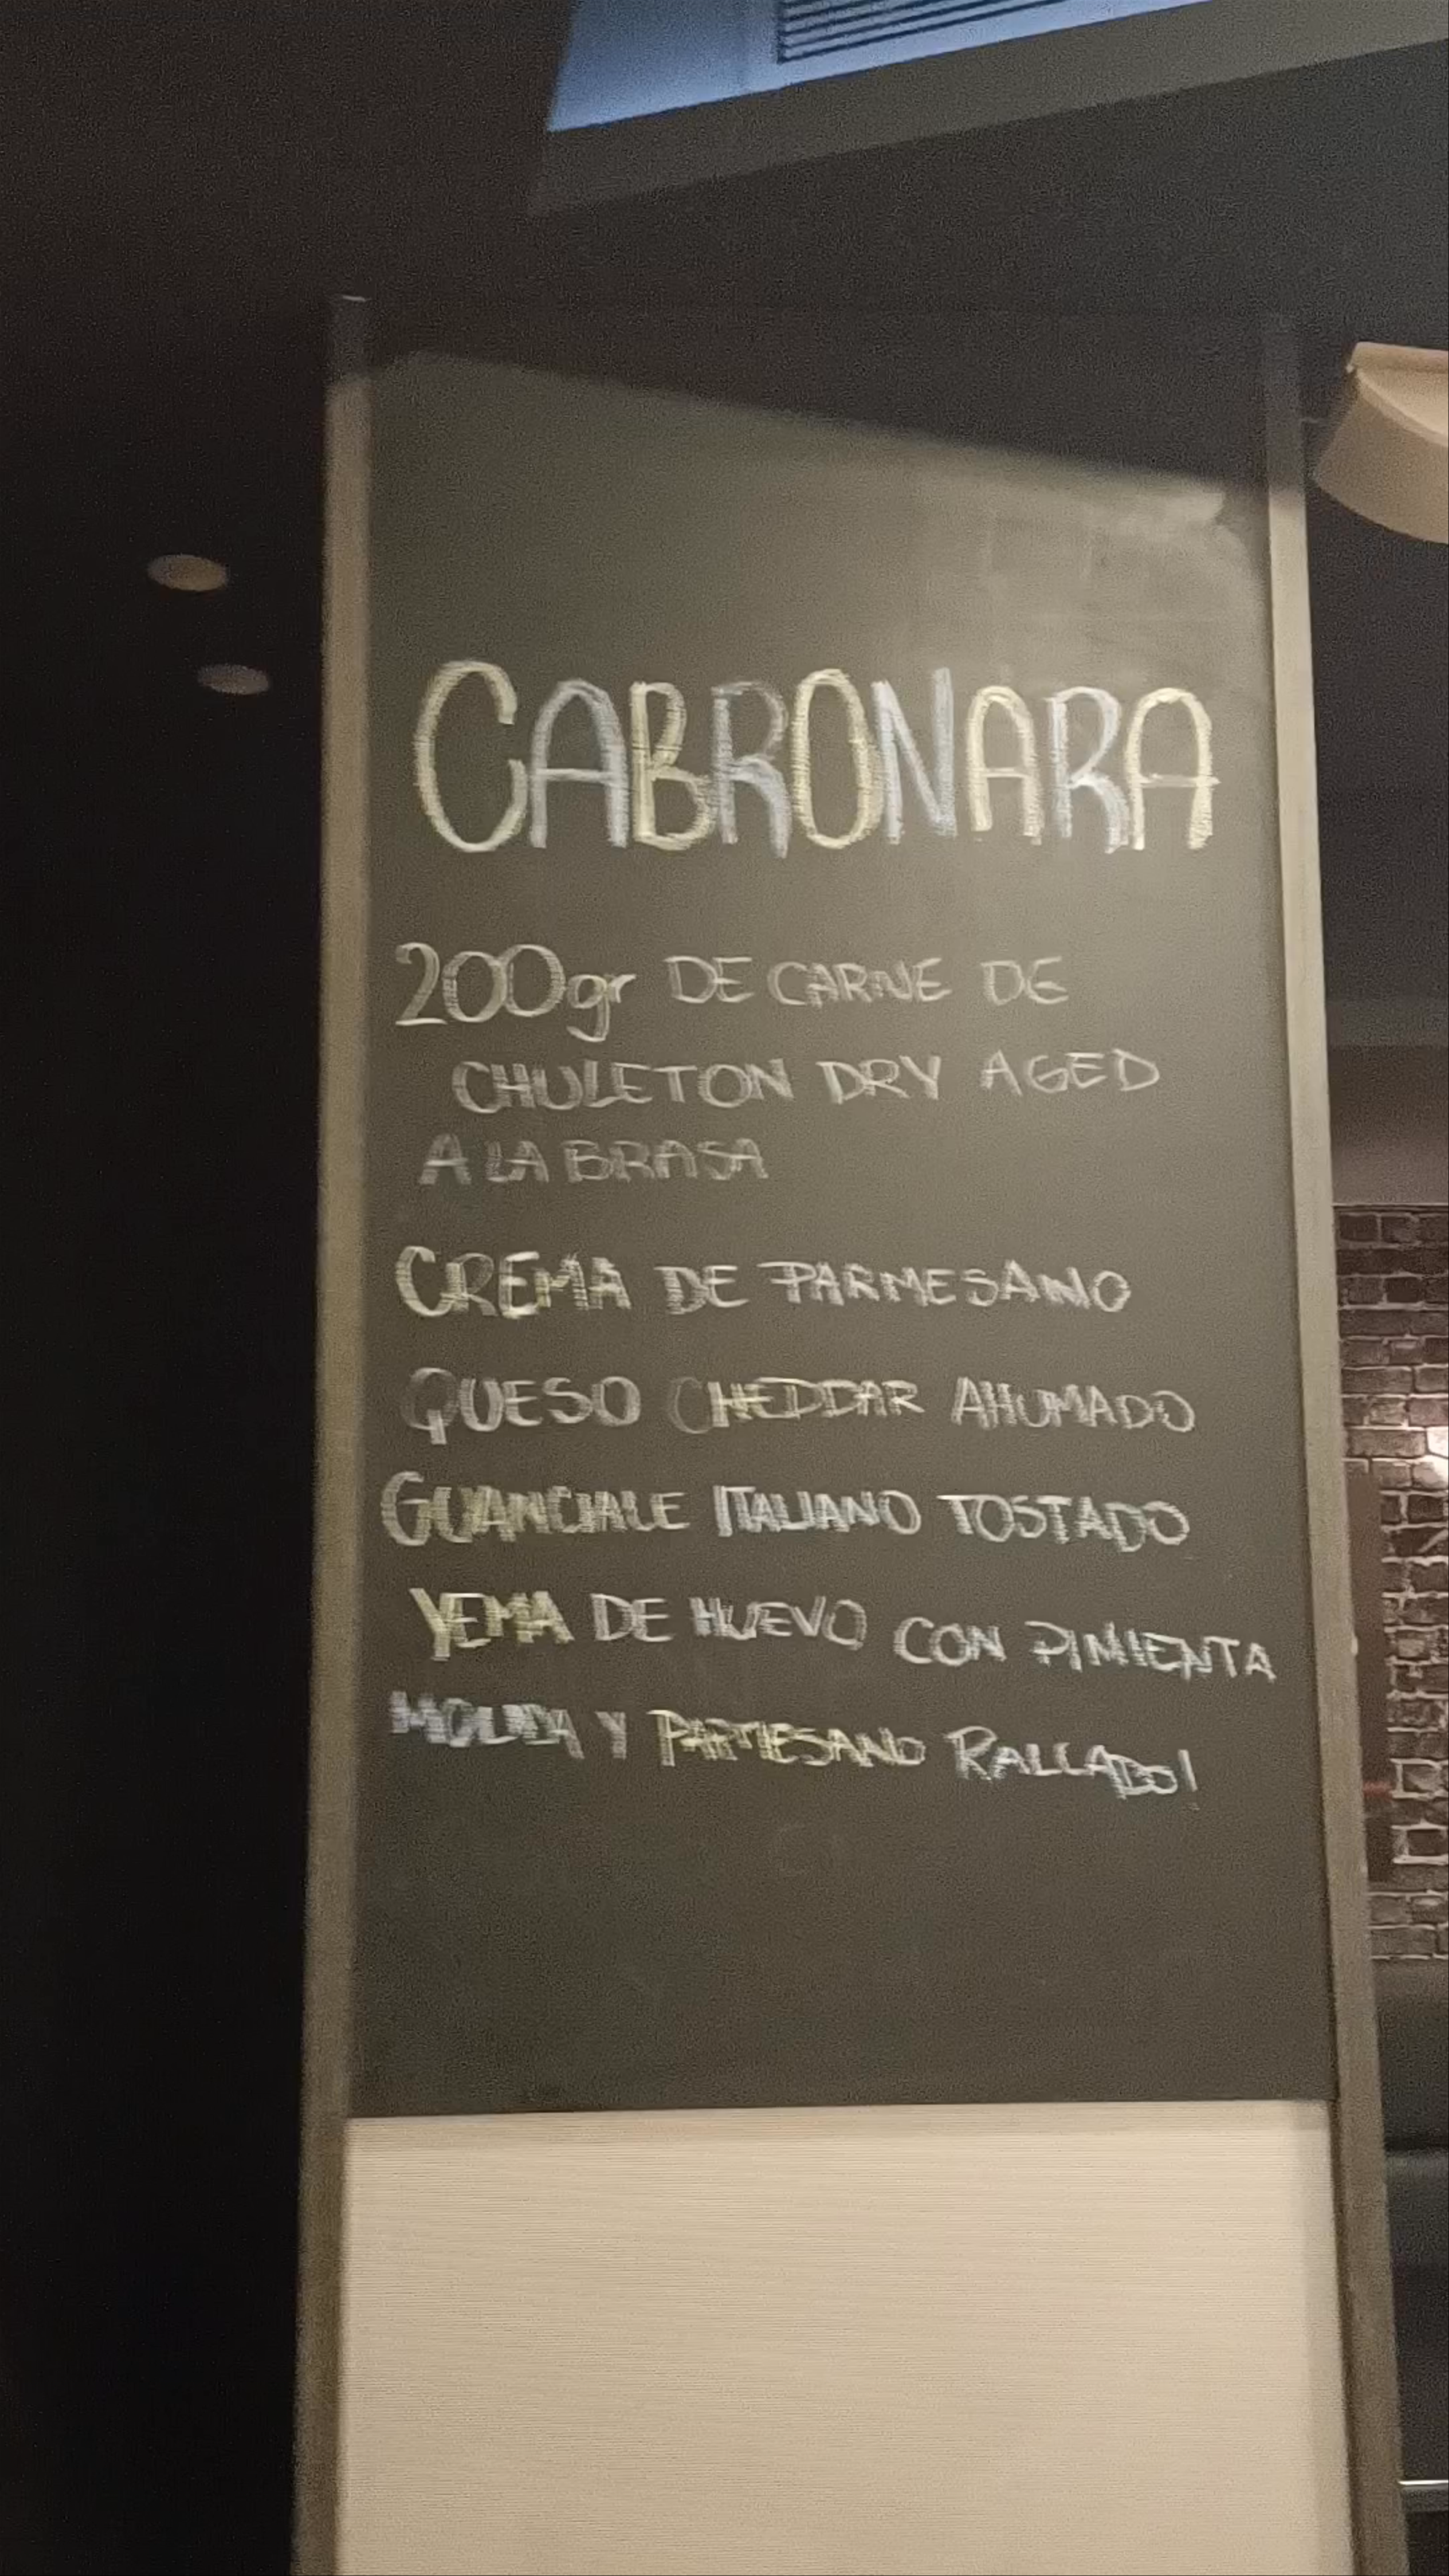 CABRONARA
200gr DE CARNE DE
CHULETON DRY AGED
A LA BRASA
CREMA DE PARMESANO
QUESO CHEDDAR AHUMADO
GUANCIALE ITALIANO TOSTADO
YEMA DE HUEVO CON PIMIENTA
MOLIDA Y PARMESANO RALLADO!